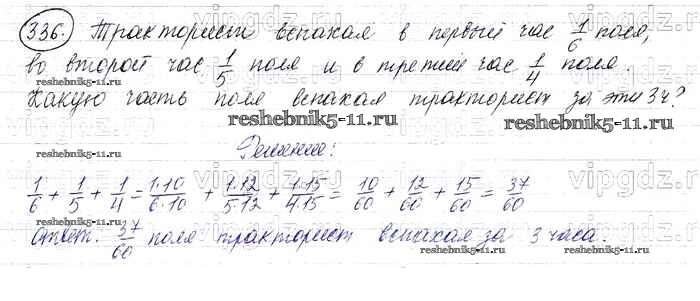 336. Тракторист вспахал в первый час 1/6 поля,
во второй час 1/5 поля и в третий час 1/4 поля
Какую часть поля вспахал тракторист за эти 3ч?
reshebnik5-11.ru reshebnik5-11.ru
Решение:
1/6 + 1/5 + 1/4 = 1·10/6·10 + 1·12/5·12 + 1·15/4·15 = 10/60 + 12/60 + 15/60 = 37/60
Ответ: 37/60 поля тракторист вспахал за 3 часа.
reshebnik5-11.ru reshebnik5-11.ru
vipgdz.ru